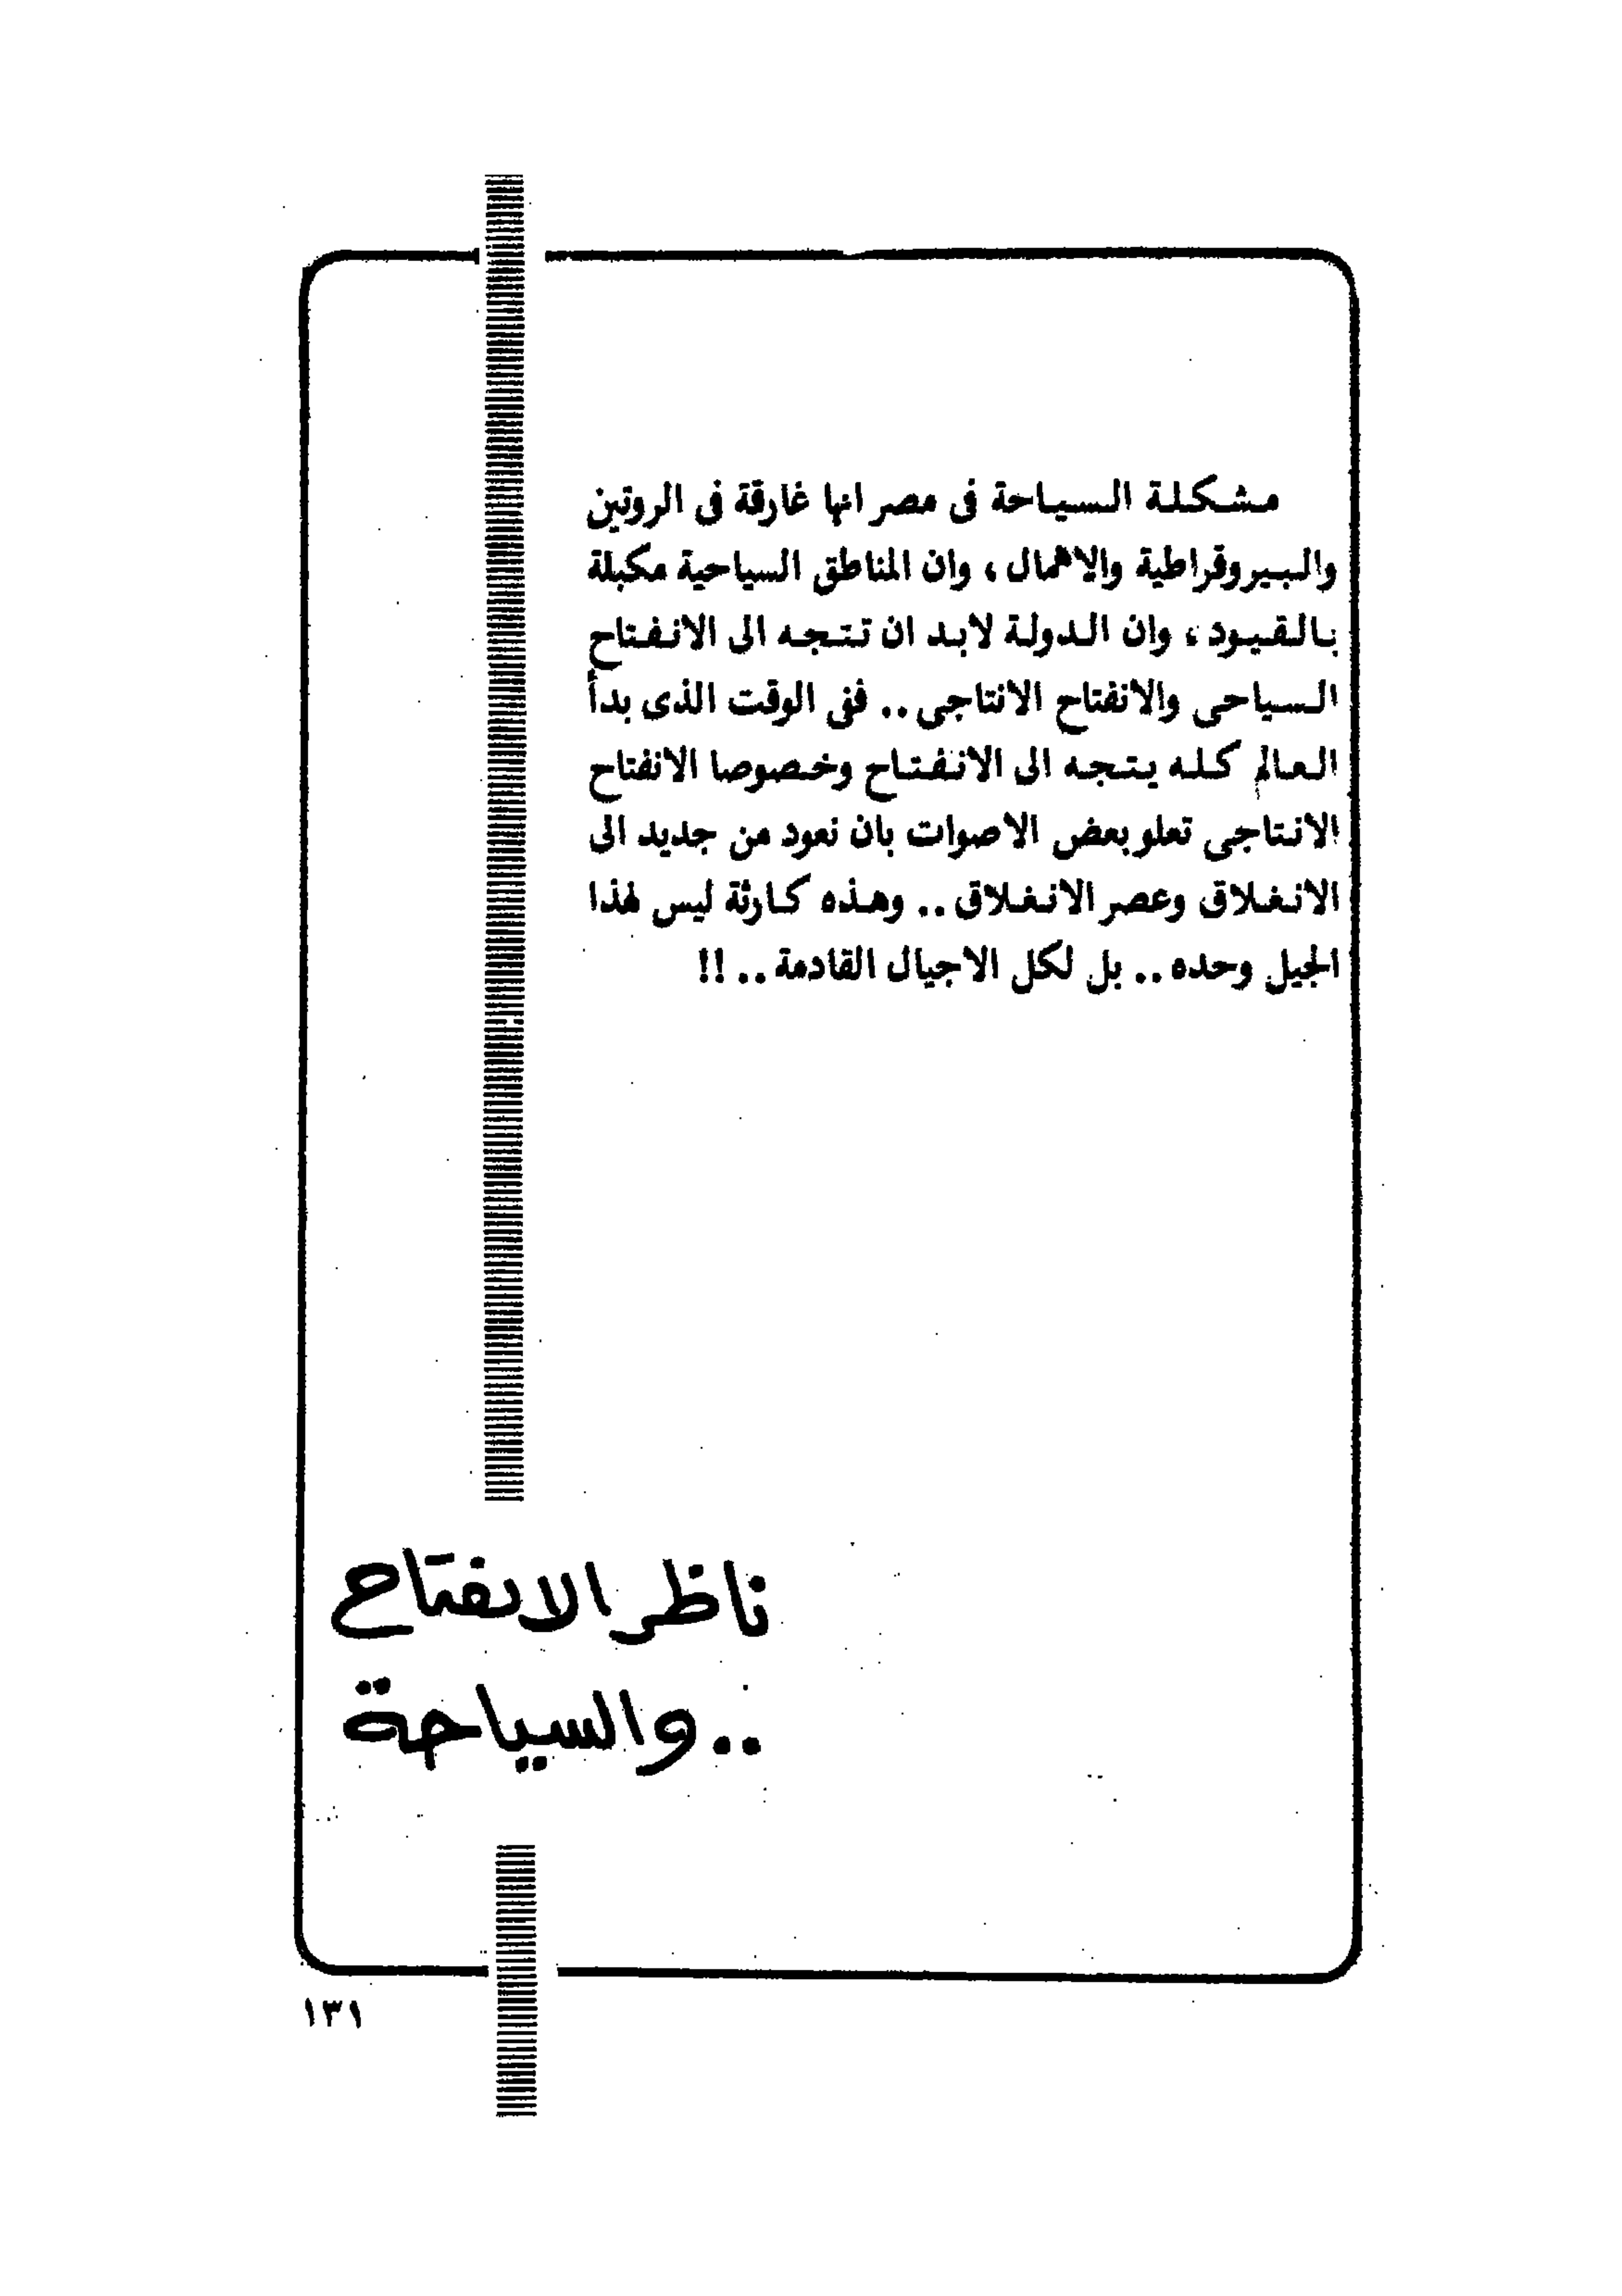 مشكلة السياحة فى مصر انها غارقة فى الروتين
والبيروقراطية والاهمال ، وان المناطق السياحية مكبلة
بالقيود ، وان الدولة لابد ان تتجه الى الانفتاح
السياحى والانفتاح الانتاجى .. ففى الوقت الذى بدأ
العالم كله يتجه الى الانفتاح وخصوصا الانفتاح
الانتاجى تعلو بعض الاصوات بان نعود من جديد الى
الانغلاق وعصر الانغلاق .. وهذه كارثة ليس لهذا
الجيل وحده .. بل لكل الاجيال القادمة .. !!
ناظر الانفتاح
.. والسياحة
١٣١